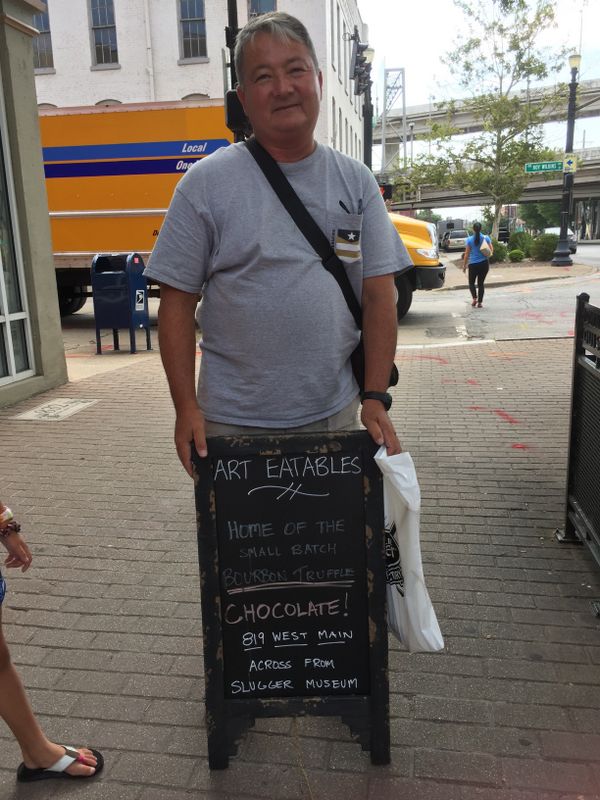 Local
One
ROY WILKINS
ART EATABLES
HOME OF THE
SMALL BATCH
BOURBON TRUFFLE
CHOCOLATE!
819 WEST MAIN
ACROSS FROM
SLUGGER MUSEUM